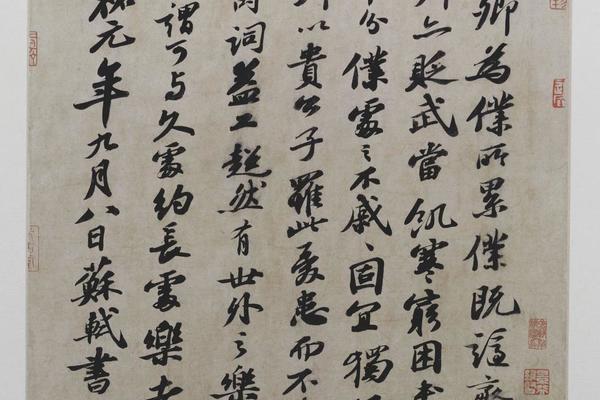 卿為僕所累僕既謫齊
亦貶武當飢寒窮困
分僕處之不戚戚固宜獨
以貴公子罹此憂患而不
詞益工超然有世外之樂
謂可与久處約長處樂者
祐元年九月八日蘇軾書